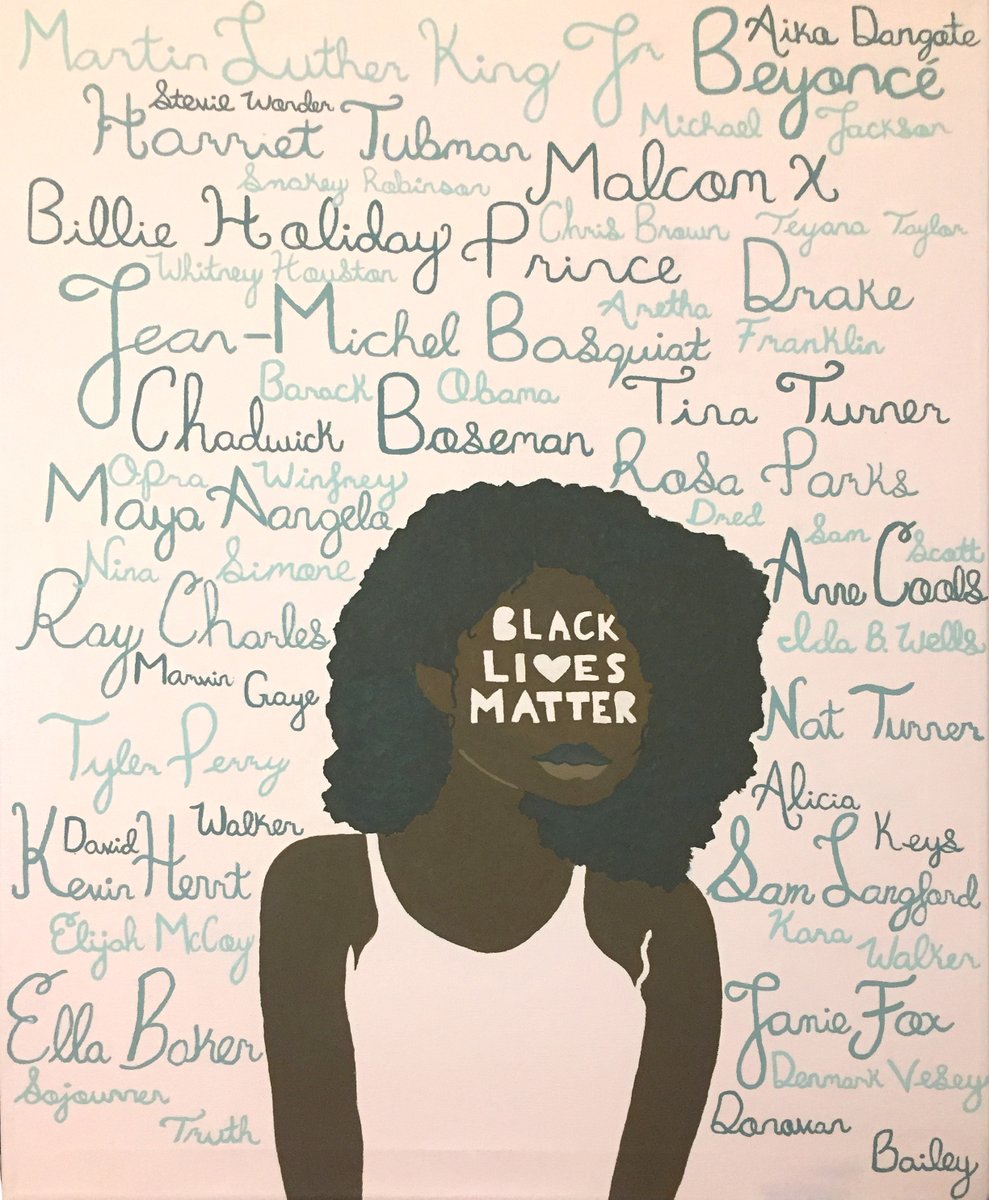 Martin Luther King Jr
Aika Dangote
Beyoncé
Stevie Wonder
Harriet Tubman
Michael Jackson
Smokey Robinson
Malcom X
Billie Holiday
Prince
Chris Brown
Teyana Taylor
Whitney Houston
Drake
Jean-Michel Basquiat
Aretha
Franklin
Barack Obama
Tina Turner
Chadwick Boseman
Opra Winfrey
Rosa Parks
Maya Aangelo
Dred
Sam
Scott
Nina Simone
Anne Cools
Ray Charles
BLACK
LIVES
MATTER
Ida B. Wells
Marvin Gaye
Nat Turner
Tyler Perry
Alicia
Keys
David
Walker
Kevin Herrt
Sam Langford
Elijah McCoy
Kara
Walker
Ella Baker
Jamie Fox
Sojourner
Truth
Denmark Vesey
Donovan
Bailey